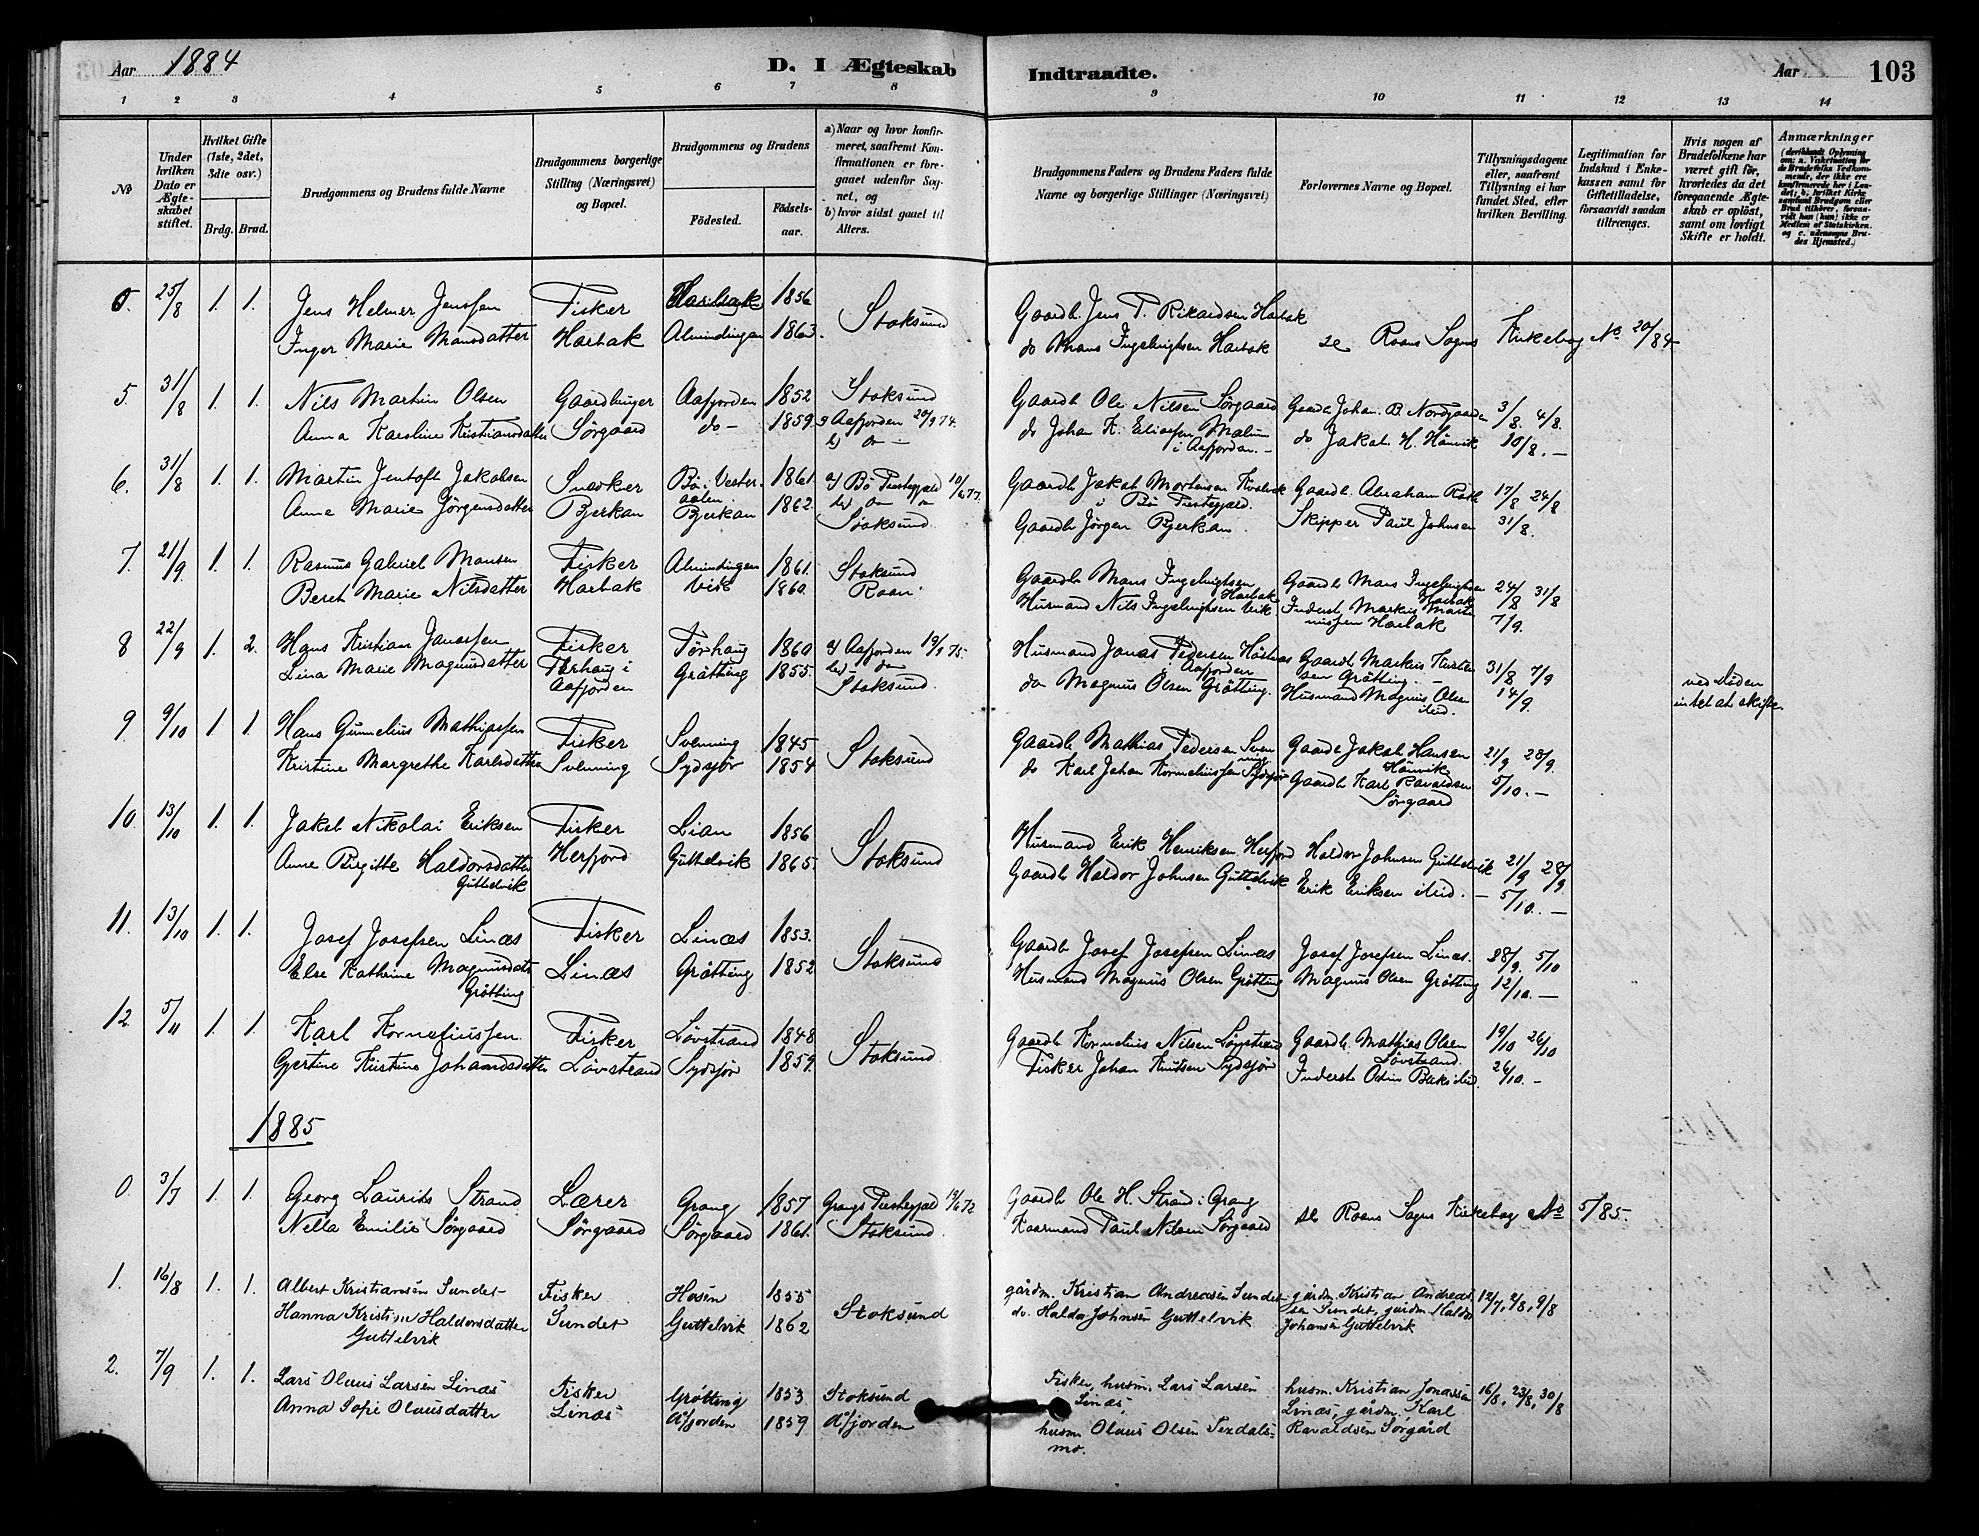 Aar 1884
D. I Ægteskab
Indtraadte.
Aar
103
1 2 3 4 5 6 7 8 9 10 11 12 13 14
No
Under hvilken Dato er Ægteskabet stiftet.
Hvilket Gifte (1ste, 2det, 3dte osv.)
Brdg. Brud.
Brudgommens og Brudens fulde Navne
Brudgommens borgerlige Stilling (Næringsvei) og Bopæl.
Brudgommens og Brudens
Födested.
Födselsaar.
a) Naar og hvor konfirmeret, saafremt Konfirmationen er foregaaet udenfor Sognet, og
b) hvor sidst gaaet til Alters.
Brudgommens Faders og Brudens Faders fulde Navne og borgerlige Stillinger (Næringsvei)
Forlovernes Navne og Bopæl.
Tillysningsdagene eller, saafremt Tillysning ei har fundet Sted, efter hvilken Bevilling.
Legitimation for Indskud i Enkekassen samt for Giftetilladelse, forsaavidt saadan tiltrænges.
Hvis nogen af Brudefolkene har været gift för, hvorledes da det foregaaende Ægteskab er oplöst, samt om lovligt Skifte er holdt.
Anmærkninger
0. 25/8 1. 1. Jens Helmer Jenssen Fisker Harbak 1856 Stoksund Gaardb. Jens P. Rikardsen Harbak
Inger Marie Monsdatter Harbak Almindingen 1863. do Mons Ingebrigtsen Harbak se Roans Sogns Kirkebog No 20/84
5 31/8 1. 1. Nils Martin Olsen Gaardbruger Aafjorden 1852 Stoksund Gaardb Ole Nilsen Sørgaard Gaardb Johan B Nordgaarden 3/8. 4/8.
Anna Karoline Kristiansdatter Sørgaard do 1859. Aafjorden 20/9 74. do Johan K. Eliassen Malum i Aafjorden. do Jakob H. Hānvik 10/8.
6. 31/8 1. 1. Martin Jentoft Jakobsen Snedker Bø i Vesteraalen. 1861 Bø Præstegjæld Gaardb Jakob Mortensen i Bø Præstegjæld. Gaardb. Abraham 17/8 24/8
Anne Marie Jørgensdatter Bjerkan Bjerkan 1862. Stoksund. Gaardb Jørgen Bjerkan Skipper Paul Johnsen 31/8.
7. 21/9 1. 1. Rasmus Gabriel Monsen Fisker Almindingen 1861. Stoksund Gaardb Mons Ingebrigtsen Harbak Gaardb Mons Ingebrigtsen Harbak 24/8 31/8
Beret Marie Nilsdatter Harbak Vik 1860. Roan Husmand Nils Ingebrigtsen Vik Inderst Markus Martinussen Harbak 7/9.
8 22/9 1. 2. Hans Kristian Janassen Fisker Tørhaug 1860 Aafjorden 19/9 75. Husmand Jonas Pedersen Aafjorden Gaardb Markus Grøtting. 31/8 7/9
Lina Marie Magnusdatter Tørhaug i Aafjorden Grøtting 1855. Stoksund. do Magnus Olsen Grøtting. Husmand Magnus Olsen ibid. 14/9. ved Døden intet at skifte.
9 9/10 1. 1. Hans Gunnelius Mathiassen Fisker Svenning 1845 Stoksund Gaardb Mathias Pedersen Svenning Gaardb Jakob Hansen Hānvik 21/9 28/9.
Kristine Margrethe Karlsdatter Svenning Sydsjør 1854 do Karl Johan Korneliussen Sydsjør Gaardb Karl Ravaldsen Sørgaard 5/10.
10. 13/10 1. 1. Jakob Nikolai Eriksen Fisker Lian 1856 Stoksund Husmand Erik Henriksen Herfjord Haldor Johnsen Guttelvik 21/9 28/9
Anne Birgitte Haldorsdatter Guttelvik Herfjord Guttelvik 1865. Gaardb Haldor Johnsen Guttelvik Erik Eriksen ibid. 5/10.
11. 13/10 1. 1. Josef Josefsen Linæs Fisker Linæs 1853. Stoksund Gaardb Josef Josefsen Linæs Josef Josefsen Linæs. 28/9. 5/10
Else Kathrine Magnusdatr Grøtting Linæs Grøtting 1852. Husmand Magnus Olsen Grøtting Magnus Olsen Grøtting 12/10.
12. 5/11 1. 1. Karl Korneliussen Fisker Løvstrand 1848 Stoksund. Gaardb Kornelius Nilsen Løvstrand Gaardb. Mathias Olsen Løvstrand. 19/10 26/10
Gjertine Kristine Johansdatter Løvstrand Sydsjør 1859. Fisker Johan Knutsen Sydsjør Inderst Odin ibid. 26/10.
1885
0. 3/7 1. 1. Georg Laurits Strand Lærer Grong 1857 Grongs Præstegjæld Gaardb Ole H. Strand i Grong
Nella Emilie Sørgaard Sørgaard Sørgaard 1861. Stoksund. Paul Nilsen Sørgaard se Roans Sogns Kirkebog No 5/85.
1. 16/8 1. 1. Albert Kristiansen Sundet Fisker Hosen 1855 Stoksund gårdm. Kristian Andreasen Sundet gårdm. Kristian Andreassen Sundet, gårdm Haldor Johansen Guttelvik 12/7, 2/8, 9/8
Hanna Kristine Haldorsdatter Guttelvik Sundet Guttelvik 1862 do. Haldor Johnsen Guttelvik
2. 7/9 1. 1. Lars Olaus Larsen Linæs Fisker Grøtting 1853 Stoksund Fisker, husm. Lars Larsen Linæs. husm. Kristian Jonassen Linæs, gårdm. Karl Ravaldsen Sørgård 16/8, 23/8, 30/8
Anna Sofie Olausdatter Linæs Åfjorden 1859 Åfjorden husm Olaus Olsen Texdalsmo.